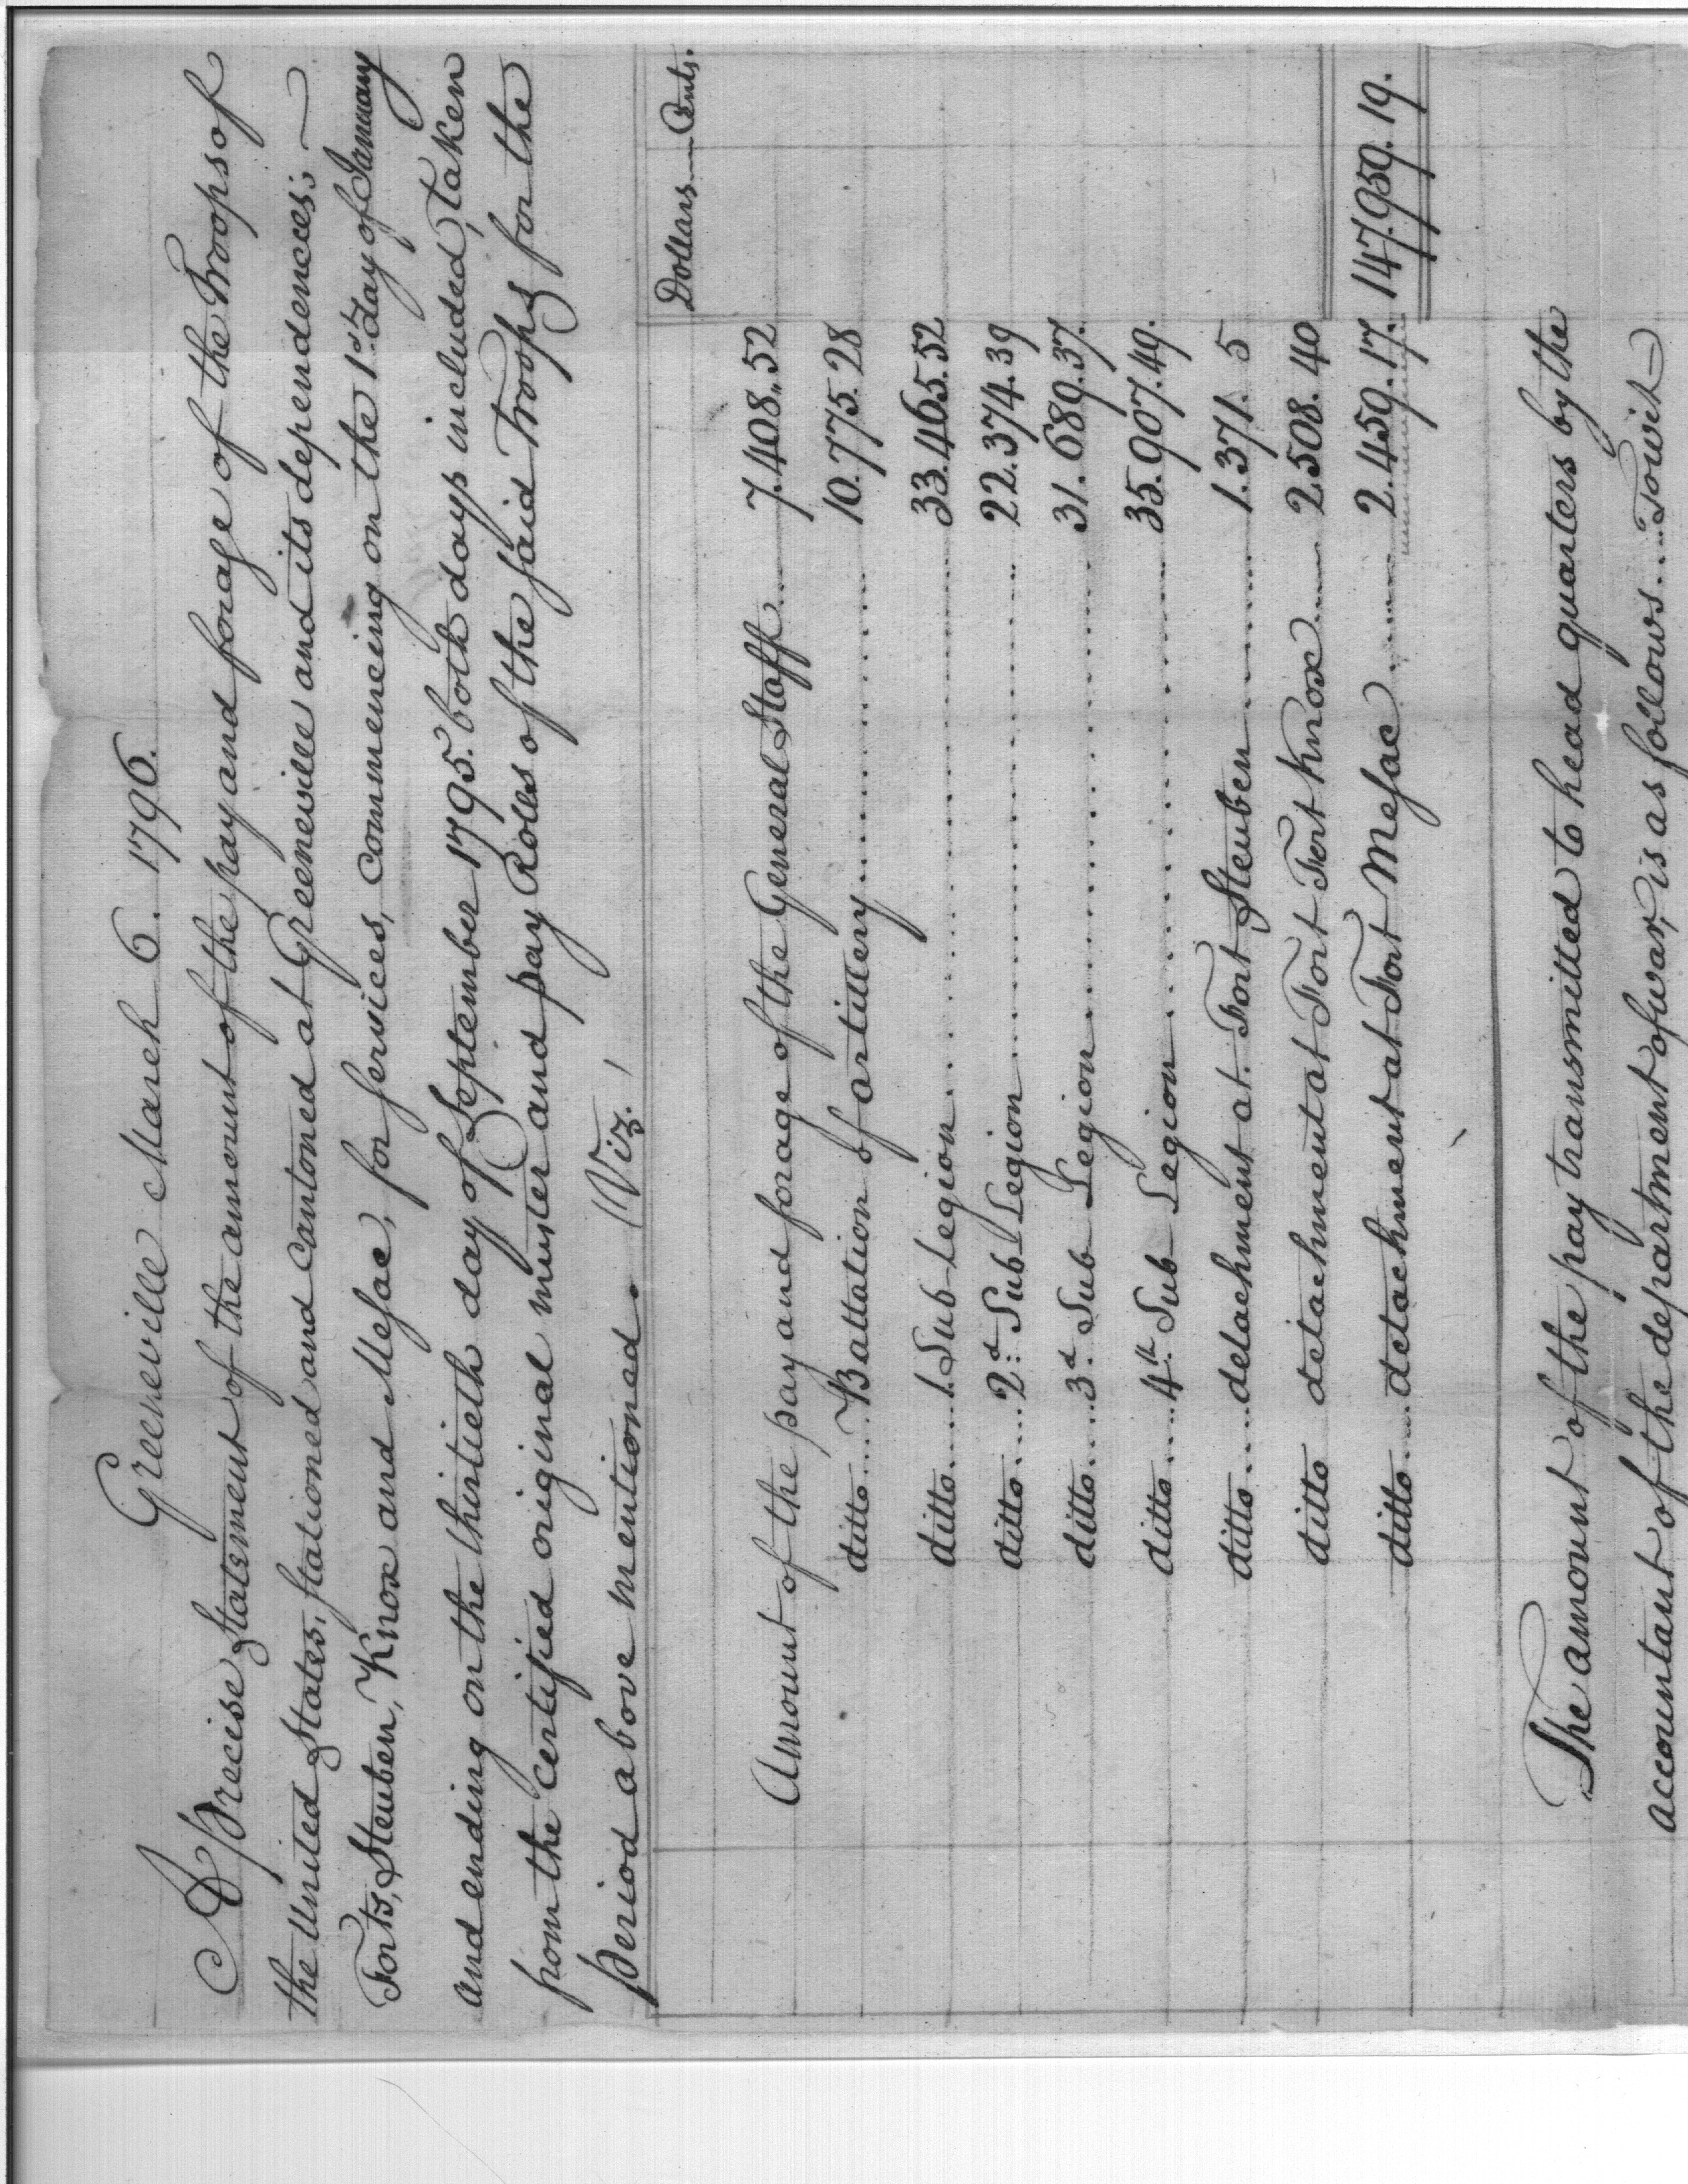 Greeneville March 6. 1796.
A precise statement of the amount of the pay and forage of the Troops of
the United States, stationed and cantoned at Greeneville and its dependencies; —
Forts, Steuben, Knox and Mesac, for services, commencing on the 1st. day of January
and ending on the thirtieth day of September 1795. both days included, taken
from the certified original muster and pay Rolls of the said Troops for the
period above mentioned. (Viz. /
Dollars — Cents.
Amount of the pay and forage of the General Staff .... 7.408..52
ditto .... Battation of artillery .... 10.775.28
ditto .... 1. Sub-Legion .... 33.465.52
ditto .... 2d. Sub Legion .... 22.374.39
ditto .... 3d. Sub Legion .... 31.689.37.
ditto .... 4th. Sub Legion .... 35.907.49.
ditto .... detachment at Fort Steuben .... 1.371.5
ditto detachment at Fort Fort Knox .... 2.508.40
ditto .... detachment at Fort Mesac .... 2.459.17. 147.959.19.
The amount of the pay transmitted to head quarters by the
accountant of the department of war, is as follows ... Towit —